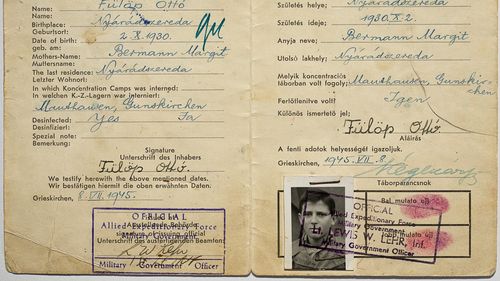 Name: Fülöp Ottó
Birthplace: Nyárádszereda
Geburtsort:
Date of birth: 2 X 1930.
geb. am:
Mothers-Name: Bermann Margit
Muttersname:
The last residence: Nyárádszereda
Letzter Wohnort:
In which Koncentration Camps was interned:
In welchen K.-Z.-Lagern war interniert:
Mauthausen, Gunskirchen
Desinfected: Yes Ja
Desinfiziert:
Special note:
Bemerkung:
Signature
Unterschrift des Inhabers
Fülöp Ottó.
We testify herewith the above mentioned dates.
Wir bestätigen hiermit die oben erwähnten Daten.
Grieskirchen, 8. VII. 1945.
OFFICIAL
Allied Expeditionary Force
Military Government
signature of issuing official
Unterschrift des ausfertigenden Beamten:
Military Government Officer
Születés helye: Nyárádszereda
Születés ideje: 1930. X. 2.
Anyja neve: Bermann Margit
Utolsó lakhely: Nyárádszereda
Melyik koncentrációs
táborban volt fogoly: Mauthausen, Gunskirchen
Fertőtlenitve volt? Igen
Különös ismertető jel:
Fülöp Ottó.
Aláirás
A fenti adatok helyességét igazoljuk.
Grieskirchen, 1945. VII. 8.
Táborparancsnok
Bal mutató ujj
Jobb mutató ujj
OFFICIAL
Allied Expeditionary Force
Military Government
LEWIS W. LEHR, Inf.
Military Government Officer